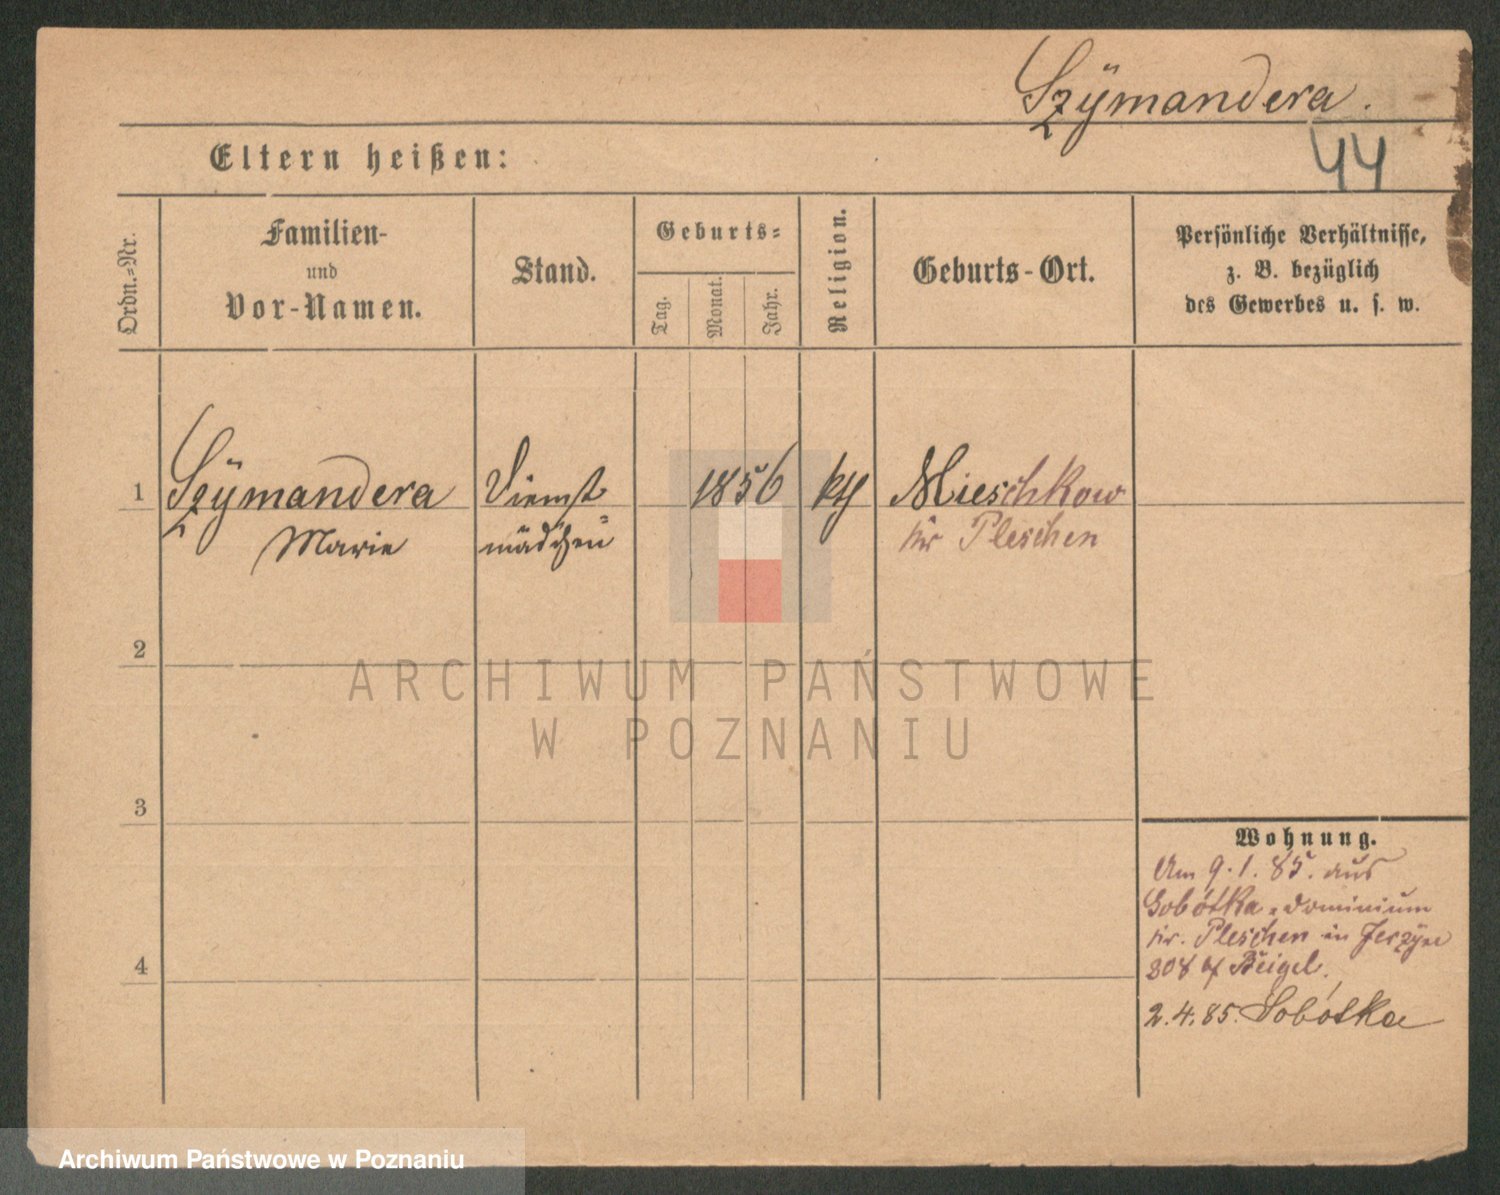 Szÿmandera.
44
Eltern heißen:
Ordn.=Nr.
Familien-
und
Vor-Namen.
Stand.
Geburts=
Tag.
Monat.
Jahr.
Religion.
Geburts-Ort.
Persönliche Verhältnisse,
z. B. bezüglich
des Gewerbes u. s. w.
1
Szÿmandera
Marie
Dienst
mädchen
1856
kth
Mieschkow
Kr Pleschen
2
3
4
Wohnung.
Am 9.1.85. aus
Sobótka-Dominium
Kr. Pleschen in
2.4.85. Sobótka
ARCHIWUM PAŃSTWOWE
W POZNANIU
Archiwum Państwowe w Poznaniu